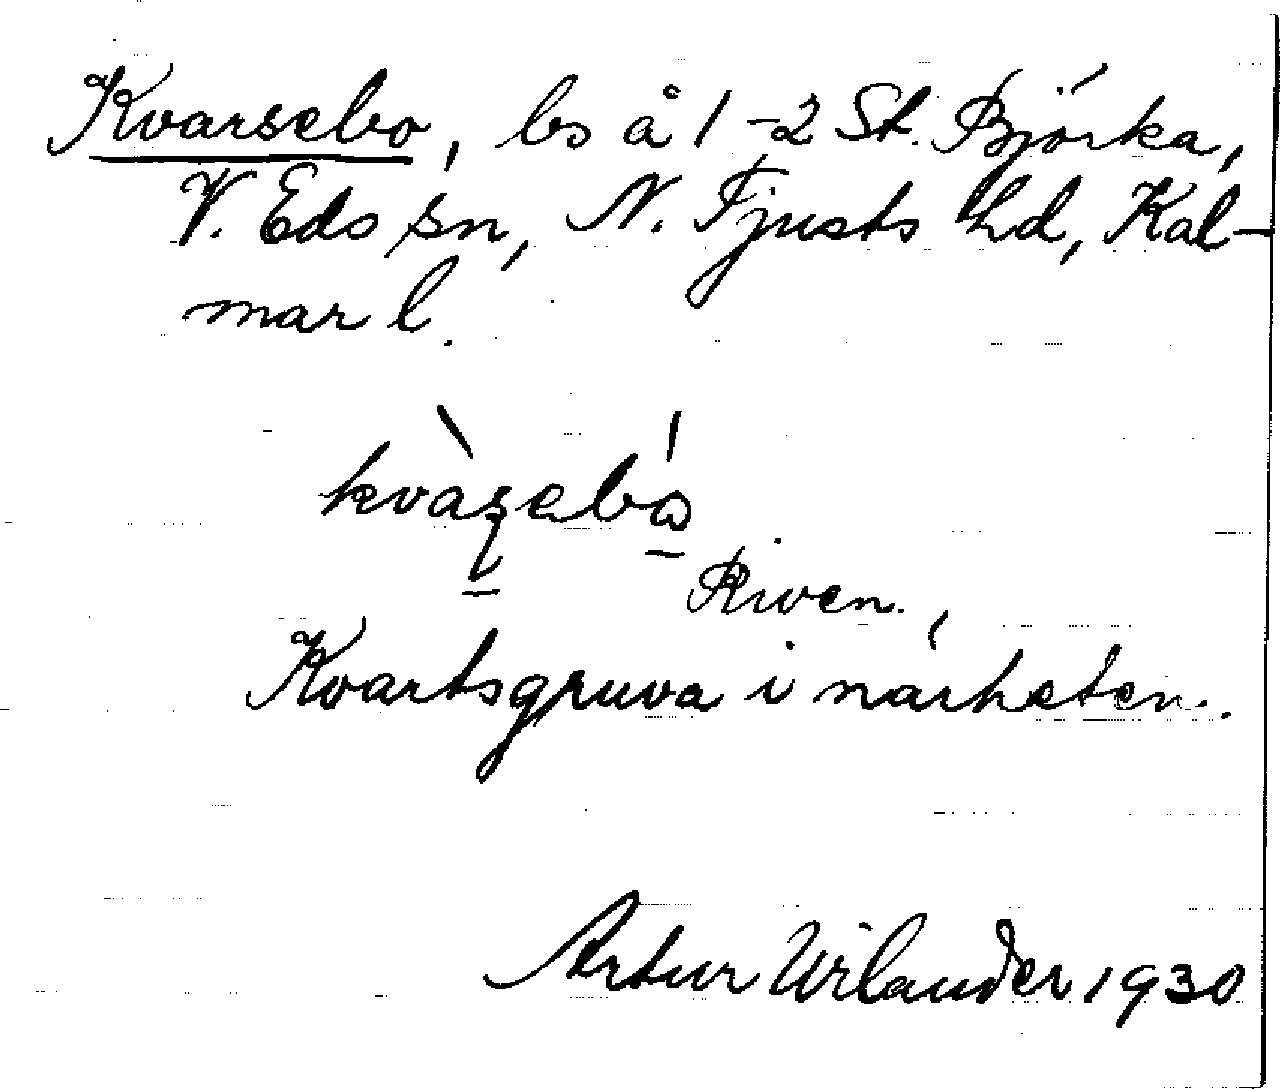 Kvarsebo, ls å 1-2 St. Björka,
V. Eds sn, N. Tjusts hd, Kal-
mar l.
kvàʂebó
Riven.
Kvartsgruva i närheten.
Artur Wilander 1930